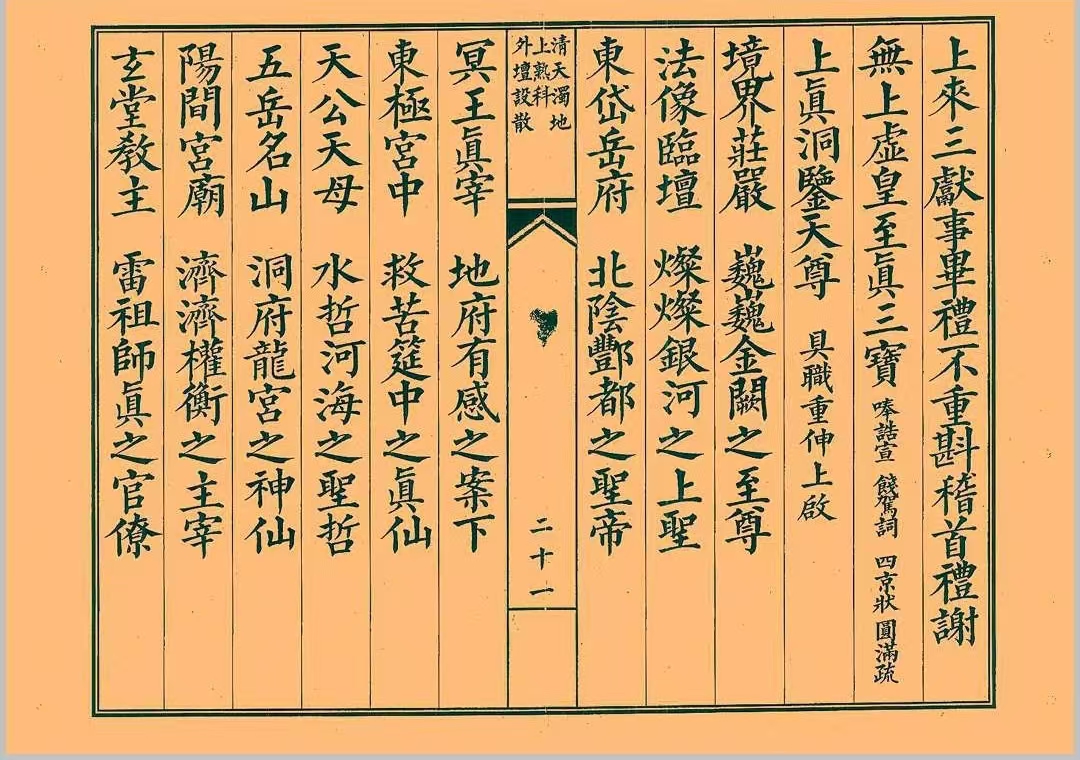 上來三獻事畢禮不重斟稽首禮謝
無上虛皇至眞三寶 唪誥宣 餞駕詞 四京狀 圓滿疏
上眞洞鑒天尊 具職重伸上啟
境界莊嚴 巍巍金闕之至尊
法像臨壇 燦燦銀河之上聖
東岱岳府 北陰酆都之聖帝
清天濁地
上熟科
外壇設散
二十一
冥王眞宰 地府有感之案下
東極宮中 救苦筵中之眞仙
天公天母 水哲河海之聖哲
五岳名山 洞府龍宮之神仙
陽間宮廟 濟濟權衡之主宰
玄堂教主 雷祖師眞之官僚